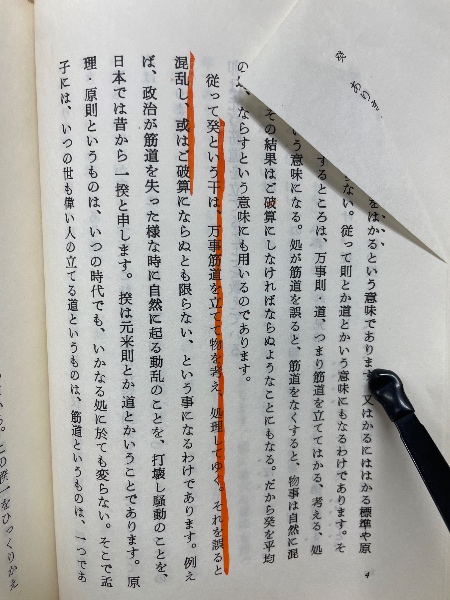 癸 あり
をはかるという意味であります。又はかるにははかる標準や原
ない。従って則とか道とかいう意味にもなるわけであります。そ
するところは、万事則・道、つまり筋道を立ててはかる、考える、処
いう意味になる。処が筋道を誤ると、筋道をなくすると、物事は自然に混
その結果はご破算にしなければならぬようなことにもなる。だから癸を平均
ならすという意味にも用いるのであります。
従って癸という干は、万事筋道を立てて物を考え、処理してゆく。それを誤ると
混乱し、或はご破算にならぬとも限らない、という事になるわけであります。例え
ば、政治が筋道を失った様な時に自然に起る動乱のことを、打壊し騒動のことを、
日本では昔から一揆と申します。揆は元来則とか道とかいうことであります。原
理・原則というものは、いつの時代でも、いかなる処に於ても変らない。そこで孟
子には、いつの世も偉い人の立てる道というものは、筋道というものは、一つであ
4
この揆一をひっくりかえ